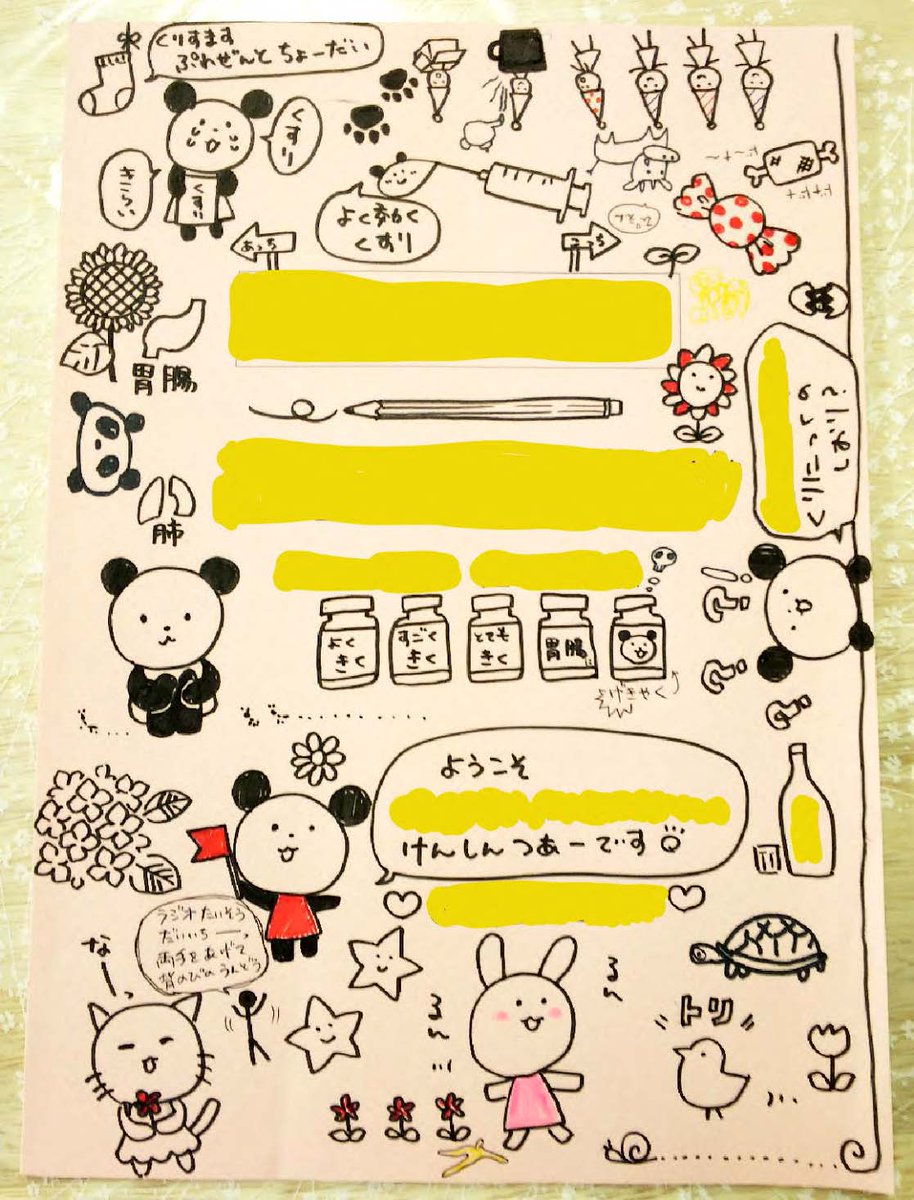 くりすます
ぷれぜんと ちょーだい
くすり
きらい
くすり
よく効く
くすり
あっち
こっち
胃腸
肺
よく
きく
すごく
きく
とても
きく
胃腸
げきやく
ようこそ
けんしんつあーです
ラジオたいそう
だいいちー、
両手をあげて
背のびのうんどう
なーっ
るん
るん
トリ